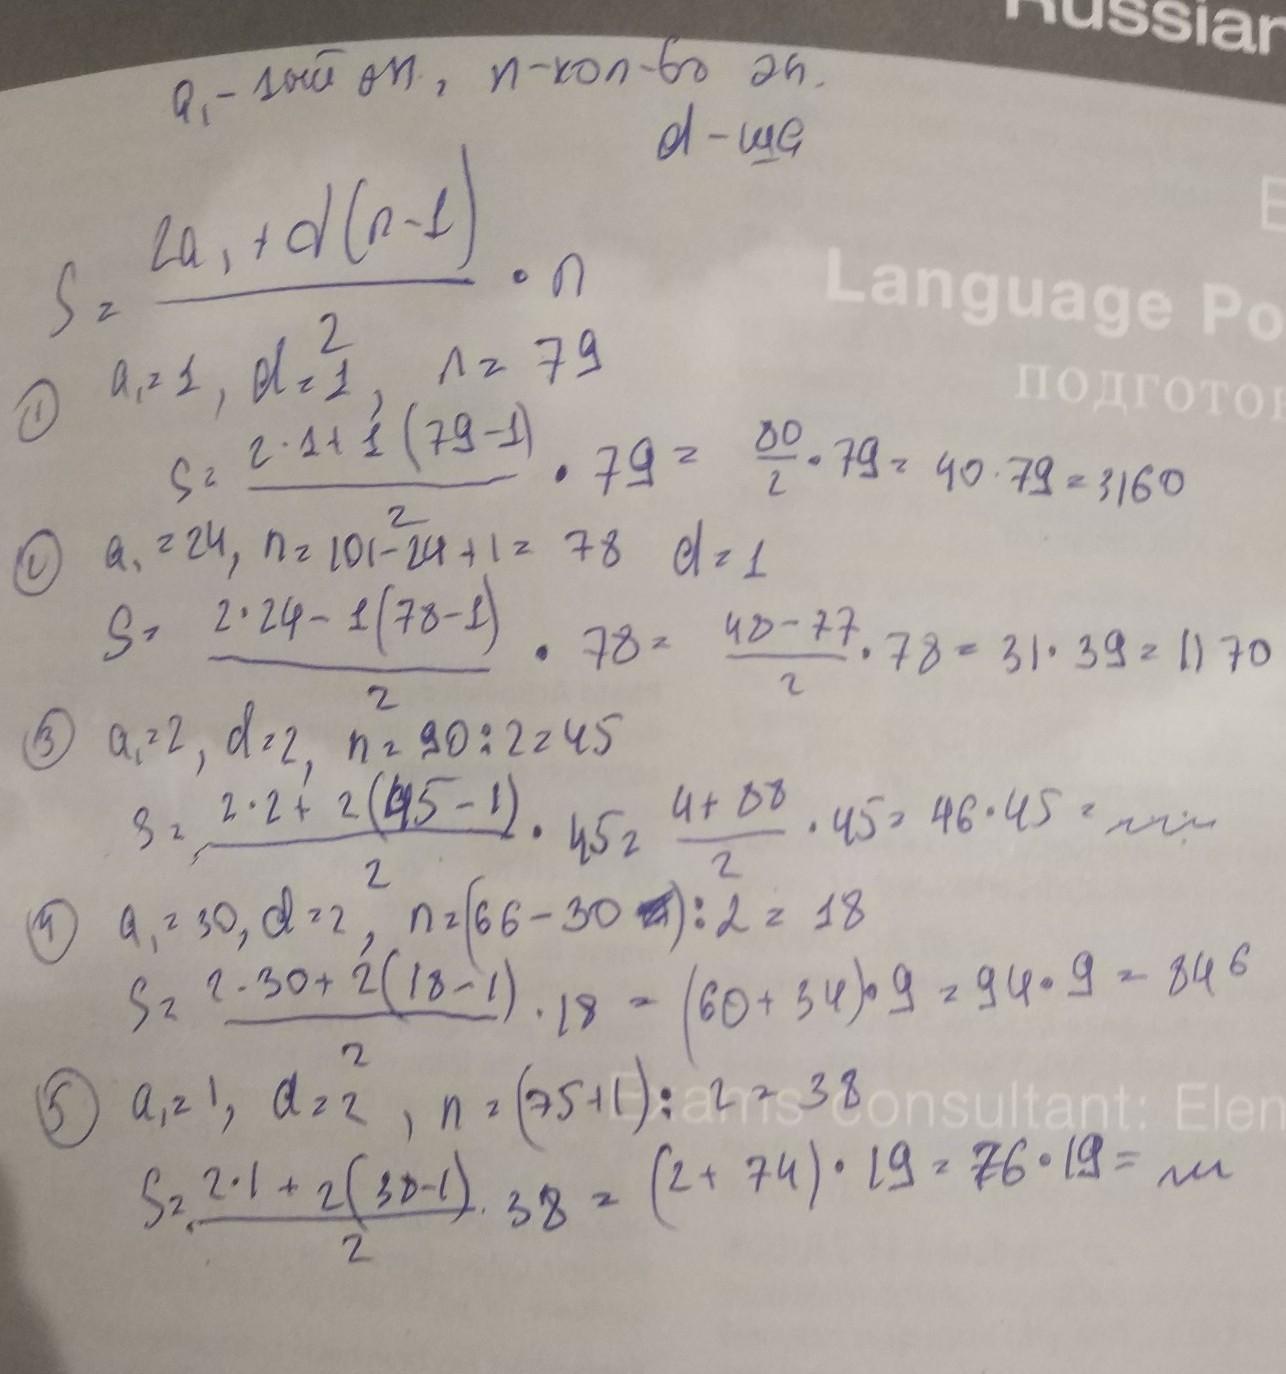 Russian
a₁ - 1ый эл., n - кол-во эл.
d - шаг
S = (2a₁ + d(n-1))/2 · n
Language Po
подгото
① a₁ = 1, d = 1, n = 79
S = (2·1 + 1(79-1))/2 · 79 = 80/2 · 79 = 40·79 = 3160
② a₁ = 24, n = 101-24+1 = 78 d = 1
S = (2·24 - 1(78-1))/2 · 78 = (48-77)/2 · 78 = 31·39 = 1170
③ a₁ = 2, d = 2, n = 90:2 = 45
S = (2·2 + 2(45-1))/2 · 45 = (4+88)/2 · 45 = 46·45 =
④ a₁ = 30, d = 2, n = (66-30):2 = 18
S = (2·30 + 2(18-1))/2 · 18 = (60+34)·9 = 94·9 = 846
⑤ a₁ = 1, d = 2, n = (75+1):2 = 38
Exams consultant: Elen
S = (2·1 + 2(38-1))/2 · 38 = (2+74)·19 = 76·19 =